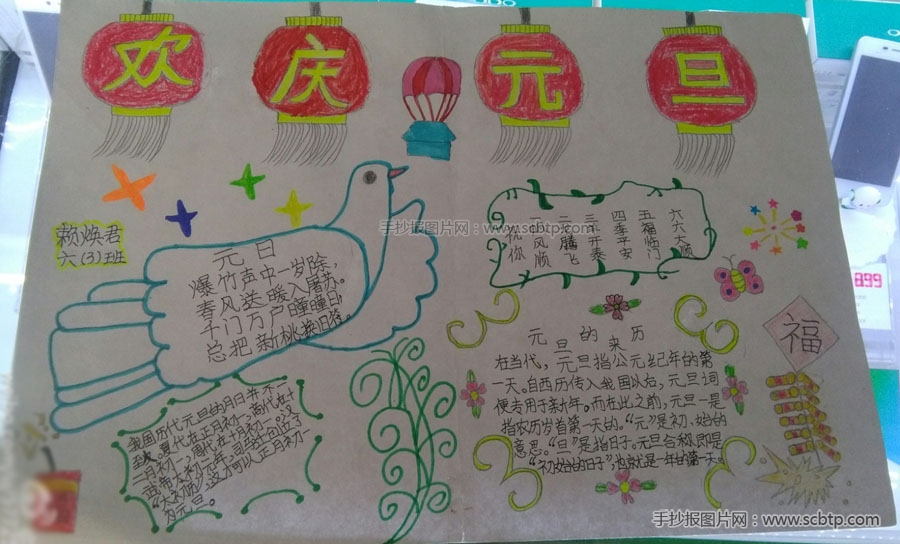 欢 庆 元 旦
赖焕君
六(3)班
元旦
爆竹声中一岁除，
春风送暖入屠苏。
千门万户曈曈日，
总把新桃换旧符。
我国历代元旦的月日并不一
致。夏代在正月初一，商代在十
二月初一，周代在十一月初一，汉
武帝太初元年，司马迁创立了
“太初历”，这才可以正月初一
为元旦。
祝你
一风顺
二腾飞
三开泰
四季平安
五福临门
六六大顺
手抄报图片网：www.scbtp.com
元旦的来历
在当代，元旦指公元纪年的第
一天。自西历传入我国以后，元旦词
便专用于新年。而在此之前，元旦一是
指农历岁首第一天的。“元”是初、始的
意思。“旦”是指日子。元旦合称，即是
“初始的日子”，也就是一年的第一天。
福
手抄报图片网：www.scbtp.com